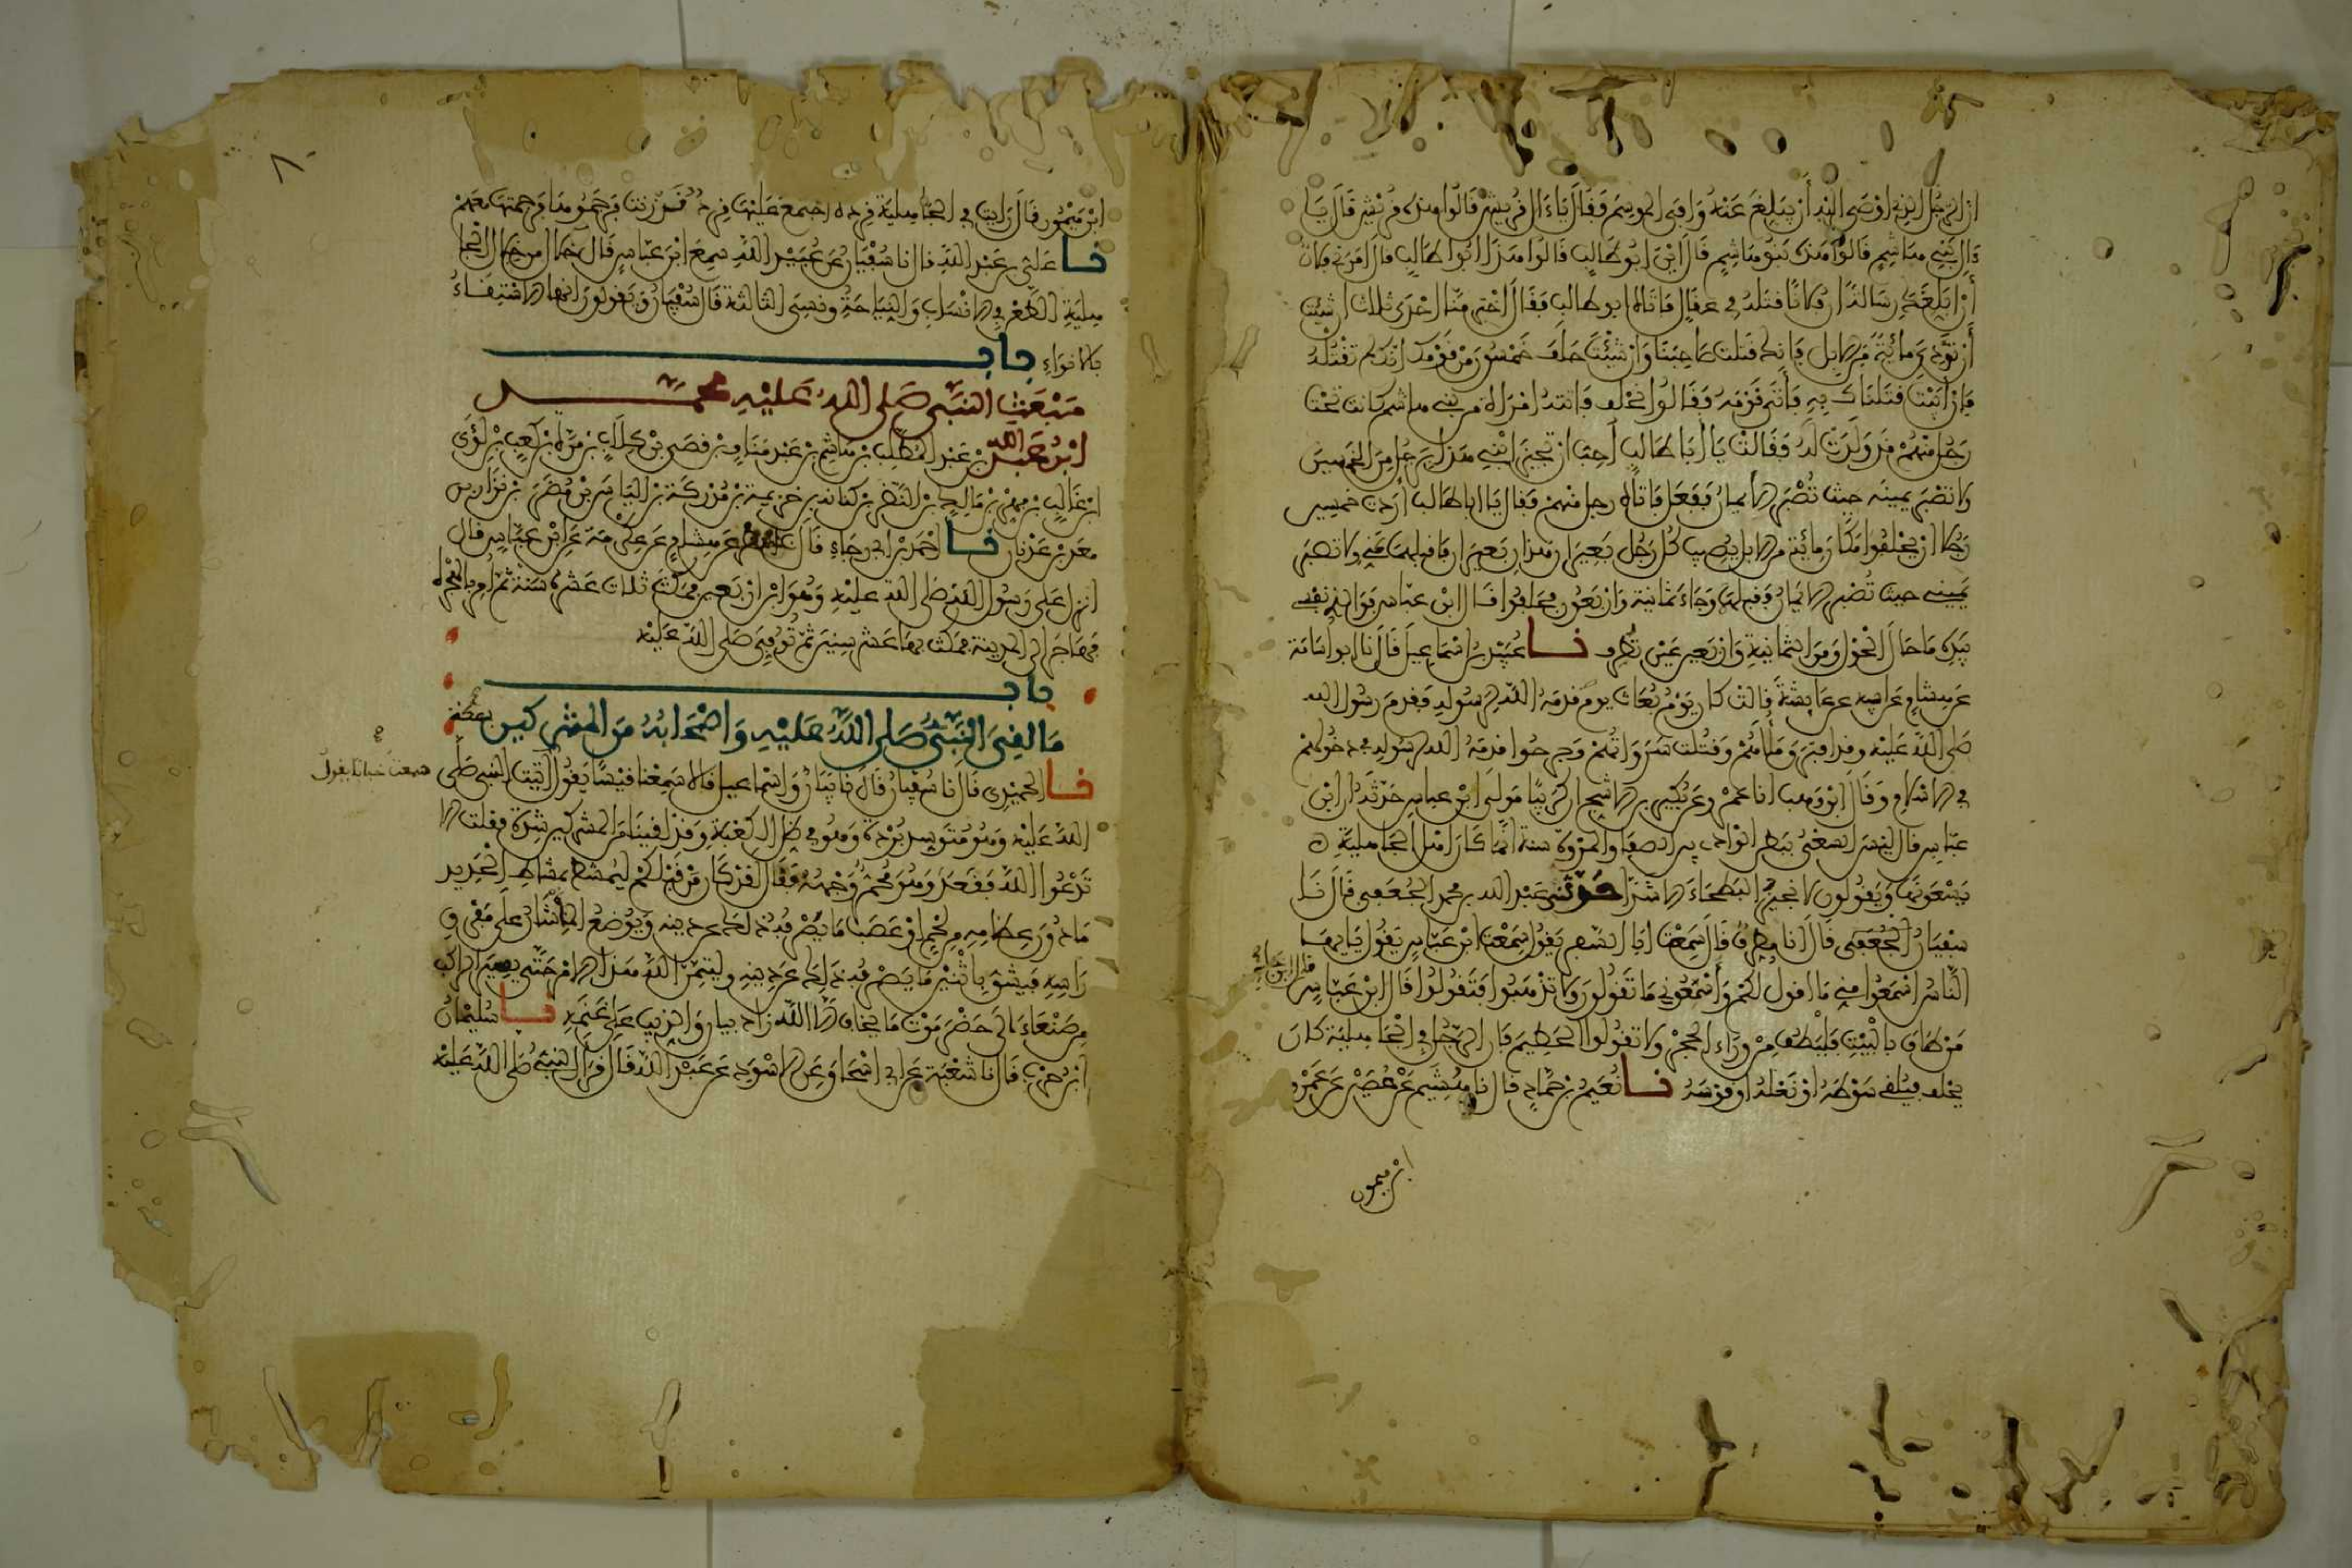 ان الرجل الذي اوصى اليه أن يبلغ عنه وافى الموسم فقال يا ءال قريش قالوا هذه قريش قال يا
ءال بني هاشم قالوا هذه بنو هاشم قال أين ابو طالب قالوا هذا ابوا طالب قال امرني فلان
أن ابلغك رسالة ان فلانا قتله في عقال فاتاه ابو طالب فقال اختر منا احدى ثلاث ان شئت
أن تؤدي مائة من الابل فانك قتلت صاحبنا وان شئت حلف خمسون من قومك انك لم تقتله
فان ابيت قتلناك به فأتى قومه فقالوا نحلف فاتته امراة من بني هاشم كانت تحت
رجل منهم قد ولدت له فقالت يا أبا طالب احب ان تجيز ابني هذا برجل من الخمسين
ولا تصبر يمينه حيث تصبر الأيمان ففعل فاتاه رجل منهم فقال يا ابا طالب أردت خمسين
رجلا ان يحلفوا مكان مائة من الابل يصيب كل رجل بعيران هذان بعيران فاقبلهما عني ولا تصبر
يميني حيث تصبر الايمان فقبلهما وجاء ثمانية واربعون فحلفوا قال ابن عباس فوالذي نفسي
بيده ما حال الحول ومن الثمانية واربعين عين تطرف نا عبيد بن اسماعيل قال نا ابو اسامة
عن هشام عن ابيه عن عايشة قالت كان يوم بعاث يوم قدمه الله لرسوله فقدم رسول الله
صلى الله عليه وقد افترق وملأهم وقتلت سرواتهم وجرحوا قدمه الله لرسوله في دخولهم
في الاسلام وقال ابن وهب انا عمر وعن بكير بن الاشج ان كريبا مولى ابن عباس حدثه ان ابن
عباس قال ليس السعي ببطن الوادي بين الصفا والمروة سنة انما كان اهل الجاهلية
يسعونها ويقولون لا نجيز البطحاء الا شدا حدثني عبد الله بن محمد الجعفي قال نا
سفيان الجعفي قال انا مطرف قال سمعت ابا السفر يقول سمعت ابن عباس يقول يا ايها
الناس اسمعوا مني ما اقول لكم وأسمعوني ما تقولون ولا تذهبوا فتقولوا قال ابن عباس
من طاف بالبيت فليطف من وراء الحجر ولا تقولوا الحطيم فان الرجل في الجاهلية كان
يحلف فيلقي سوطه او نعله او قوسه نا نعيم بن حماد قال نا هشيم عن حصين عن عمرو
بن ميمون
ابن ميمون قال رايت في الجاهلية قردة اجتمع عليها قردة قد زنت فرجموها فرجمتها معهم
نا علي بن عبد الله قال نا سفيان عن عبيد الله سمع ابن عباس قال خلال من خلال الجا
هلية الطعن في الانساب والنياحة ونسي الثالثة قال سفيان ويقولون انها الاستسقاء
بالانواء باب
مبعث النبي صلى الله عليه محمد
ابن عبد الله بن عبد المطلب بن هاشم بن عبد مناف بن قصي بن كلاب بن مرة بن كعب بن لؤي
ابن غالب بن فهر بن مالك بن النضر بن كنانة بن خزيمة بن مدركة بن الياس بن مضر بن نزار بن
معد بن عدنان نا احمد بن ابي رجاء قال عن هشام عن عكرمة عن ابن عباس قال
انزل على رسول الله صلى الله عليه وهو ابن اربعين فمكث ثلاث عشرة سنة ثم امر بالهجرة
فهاجر الى المدينة فمكث بها عشر سنين ثم توفي صلى الله عليه
باب
ما لقي النبي صلى الله عليه واصحابه من المشركين بمكة
نا الحميدي قال نا سفيان قال نا بيان واسماعيل قالا سمعنا قيسا يقول أتيت النبي صلى
سمعت خبابا يقول
الله عليه وهو متوسد بردة وهو في ظل الكعبة وقد لقينا من المشركين شدة فقلت الا
تدعوا الله فقعد وهو محمر وجهه فقال لقد كان من قبلكم ليمشط بمشاط الحديد
ما دون عظامه من لحم او عصب ما يصرفه ذلك عن دينه ويوضع المنشار على مفرق
راسه فيشق باثنين ما يصرفه ذلك عن دينه وليتمن الله هذا الامر حتى يسير الراكب
من صنعاء الى حضرموت ما يخاف الا الله زاد بيان والذيب على غنمه نا سليمان
ابن حرب قال نا شعبة عن ابي اسحاق عن الاسود عن عبد الله قال قرأ النبي صلى الله عليه